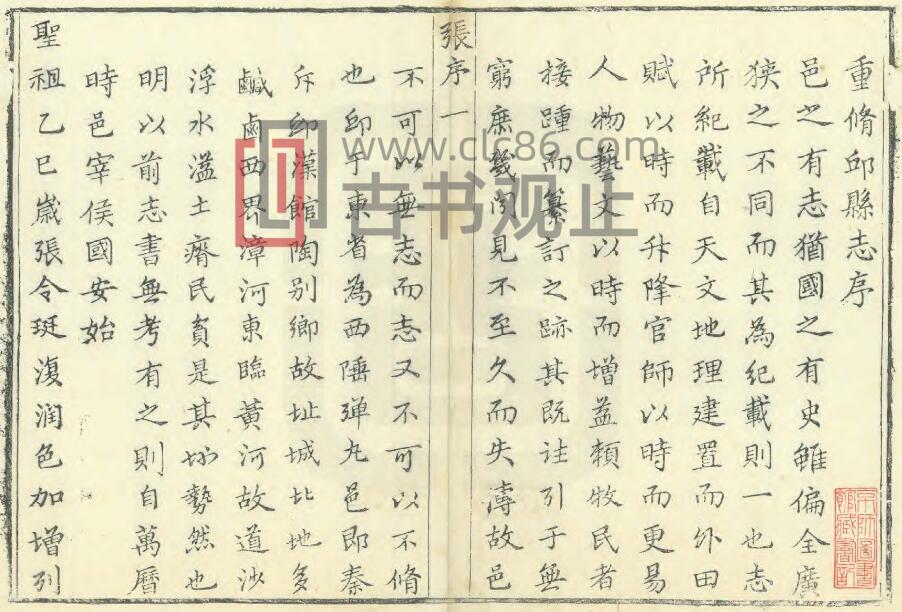 重脩邱縣志序
邑之有志猶國之有史雖偏全廣
狹之不同而其為紀載則一也志
所紀載自天文地理建置而外田
賦以時而升降官師以時而更易
人物藝文以時而增益頼牧民者
接踵而纂訂之跡其既往引于無
窮庶幾聞見不至久而失傳故邑
張序一
不可以無志而志又不可以不脩
也邱于東省為西陲弹丸邑即秦
斥邱漢館陶别鄉故址城北地多
鹹鹵西界漳河東臨黃河故道沙
浮水溢土瘠民貧是其形勢然也
明以前志書無考有之則自萬曆
時邑宰侯國安始
聖祖乙巳嵗張令珽復润色加增列
www.clc86.com
古书观止